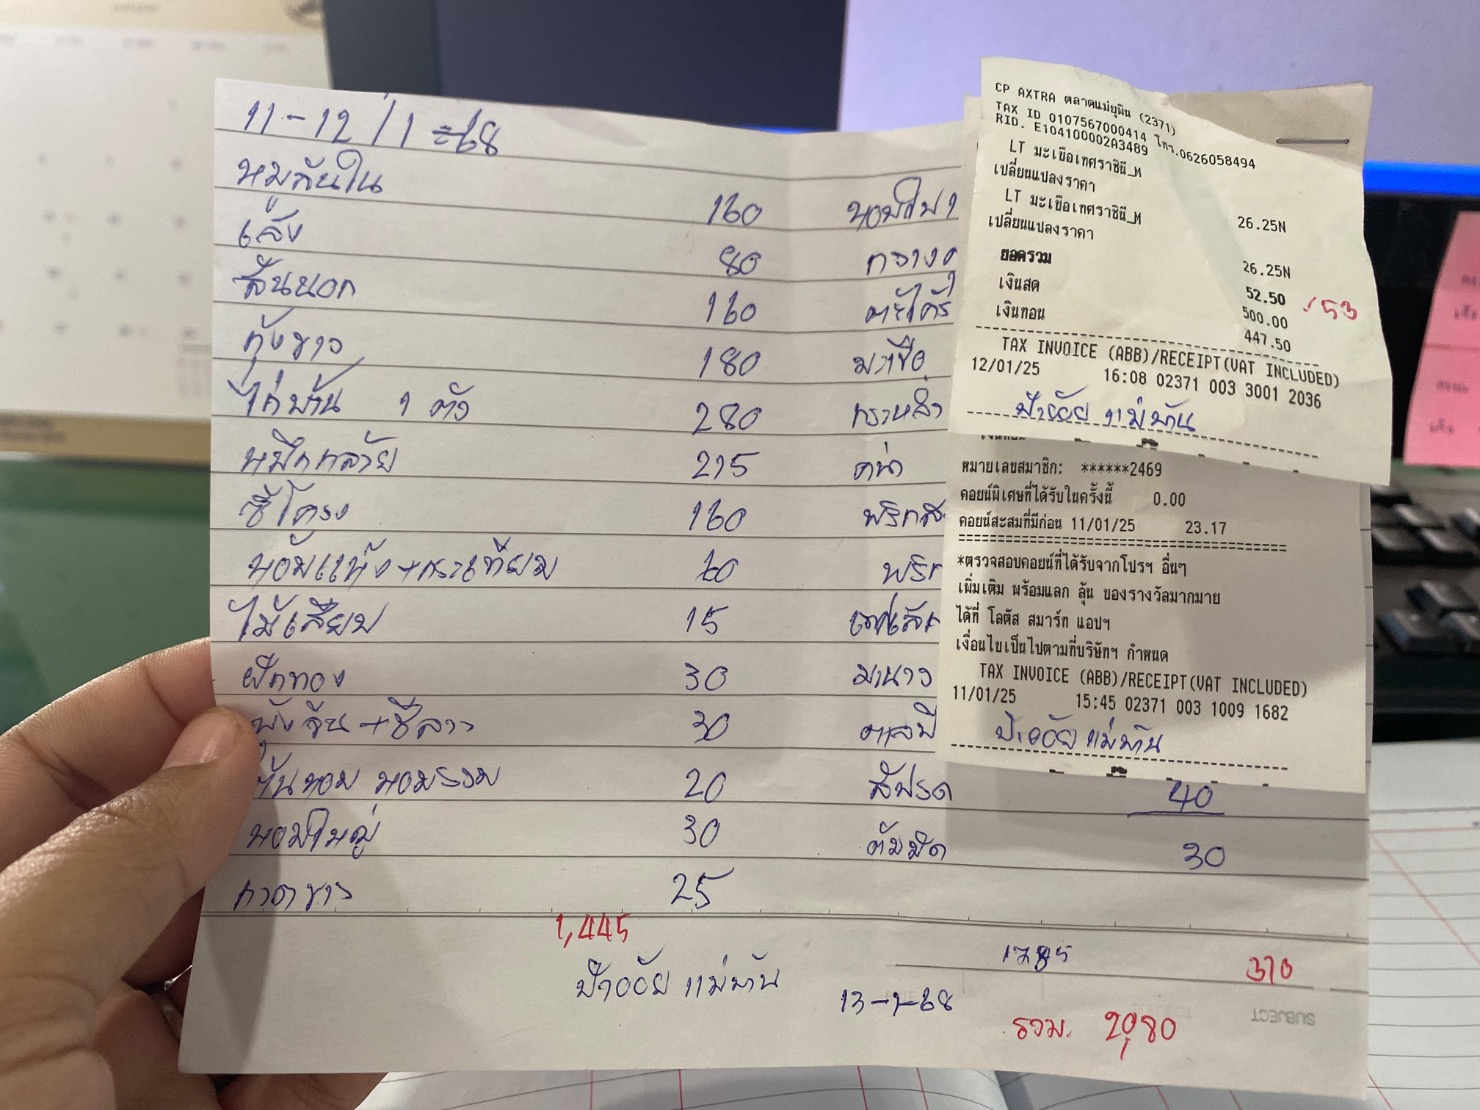 11-12/1-68
หมูสันใน 160
เล้ง 80
สันนอก 160
กุ้งขาว 180
ไก่บ้าน 1 ตัว 280
หมึกกล้วย 215
ซี่โครง 160
หอมแห้ง+กระเทียม 60
ไม้เสียบ 15
ฟักทอง 30
ผักจีน+ชีลาว 30
ต้นหอม หอมรวม 20
หอมใหญ่ 30
กวาดขาว 25
1,445
ป้าอ้อย แม่บ้าน
13-1-68
กวางต
ตะไคร้
มะเขือ
กะหล่ำ
คน้า
พริกส
พริก
มะนาว
สัปรด 40
30
1785
310
รวม. 2,080
SUBJECT
CP AXTRA ตลาดแม่ยุนิน (2371)
TAX ID 0107567000414 โทร.0626058494
RID. E104100002A3489
LT มะเขือเทศราชินี_M 26.25N
เปลี่ยนแปลงราคา
LT มะเขือเทศราชินี_M 26.25N
เปลี่ยนแปลงราคา
ยอดรวม 52.50
53
เงินสด 500.00
เงินทอน 447.50
TAX INVOICE (ABB)/RECEIPT(VAT INCLUDED)
12/01/25 16:08 02371 003 3001 2036
ป้าอ้อย แม่บ้าน
หมายเลขสมาชิก: ******2469
คอยน์พิเศษที่ได้รับในครั้งนี้ 0.00
คอยน์สะสมที่มีก่อน 11/01/25 23.17
*ตรวจสอบคอยน์ที่ได้รับจากโปรฯ อื่นๆ
เพิ่มเติม พร้อมแลก ลุ้น ของรางวัลมากมาย
ได้ที่ โลตัส สมาร์ท แอปฯ
เงื่อนไขเป็นไปตามที่บริษัทฯ กำหนด
TAX INVOICE (ABB)/RECEIPT(VAT INCLUDED)
11/01/25 15:45 02371 003 1009 1682
ป้าอ้อย แม่บ้าน